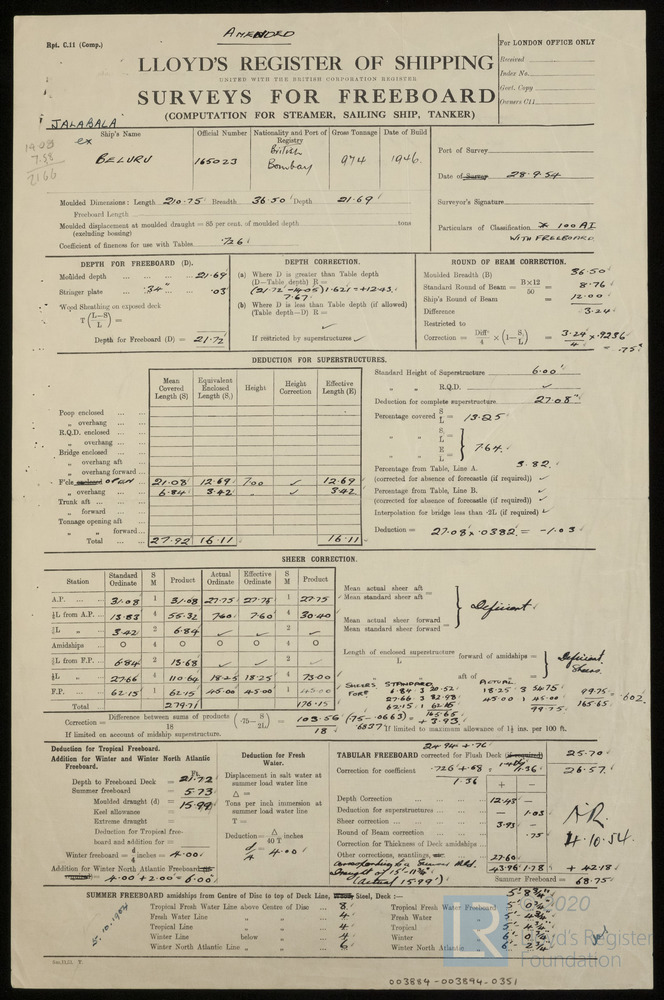 AMENDED
Rpt. C.11 (Comp.)
For LONDON OFFICE ONLY
LLOYD'S REGISTER OF SHIPPING
UNITED WITH THE BRITISH CORPORATION REGISTER
Received
Index No.
Govt. Copy
Owners C11
SURVEYS FOR FREEBOARD
(COMPUTATION FOR STEAMER, SAILING SHIP, TANKER)
JALABALA
ex
Ship's Name Official Number Nationality and Port of Registry Gross Tonnage Date of Build
BELURU 165023 British Bombay 974 1946.
19.08
7.58
2166
Port of Survey
Date of Survey 28.9.54
Surveyor's Signature
Particulars of Classification * 100 A1
WITH FREEBOARD
Moulded Dimensions: Length 210.75 Breadth 36.50 Depth 21.69
Freeboard Length
Moulded displacement at moulded draught = 85 per cent. of moulded depth tons
(excluding bossing)
Coefficient of fineness for use with Tables .726
DEPTH FOR FREEBOARD (D).
Moulded depth 21.69
Stringer plate .34" .03
Wood Sheathing on exposed deck
T (L-S/L) =
Depth for Freeboard (D) = 21.72
DEPTH CORRECTION.
(a) Where D is greater than Table depth
(D—Table depth) R =
(21.72-14.05) 1.621 = +12.43
7.67
(b) Where D is less than Table depth (if allowed)
(Table depth—D) R =
If restricted by superstructures
ROUND OF BEAM CORRECTION.
Moulded Breadth (B) 36.50
Standard Round of Beam = B×12/50 = 8.76
Ship's Round of Beam = 12.00
Difference 3.24
Restricted to
Correction = Diff/4 × (1-S₁/L) = 3.24/4 × .9236
= .75
DEDUCTION FOR SUPERSTRUCTURES.
Mean Covered Length (S) Equivalent Enclosed Length (S₁) Height Height Correction Effective Length (E)
Poop enclosed
" overhang
R.Q.D. enclosed
" overhang
Bridge enclosed
" overhang aft
" overhang forward
F'cle enclosed OPEN 21.08 12.69 7.00 ✓ 12.69
" overhang 6.84 3.42 ✓ 3.42
Trunk aft
" forward
Tonnage opening aft
" " forward
Total 27.92 16.11 16.11
Standard Height of Superstructure 6.00
" " R.Q.D. ✓
Deduction for complete superstructure 27.08"
Percentage covered S/L = 13.25
" " S₁/L =
" " E/L = } 7.64
Percentage from Table, Line A. 3.82
(corrected for absence of forecastle (if required)) ✓
Percentage from Table, Line B.
(corrected for absence of forecastle (if required)) ✓
Interpolation for bridge less than ·2L (if required) ✓
Deduction = 27.08 × .0382 = -1.03
SHEER CORRECTION.
Station Standard Ordinate S M Product Actual Ordinate Effective Ordinate S M Product
A.P. 31.08 1 31.08 27.75 27.75 1 27.75
⅙L from A.P. 13.83 4 55.32 7.60 7.60 4 30.40
⅓L " 3.42 2 6.84 ✓ ✓ 2 ✓
Amidships 0 4 0 0 0 4 0
⅓L from F.P. 6.84 2 13.68 ✓ ✓ 2 ✓
⅙L " 27.66 4 110.64 18.25 18.25 4 73.00
F.P. 62.15 1 62.15 45.00 45.00 1 45.00
Total 279.71 176.15
Mean actual sheer aft
Mean standard sheer aft =
Mean actual sheer forward
Mean standard sheer forward =
} Deficient
Length of enclosed superstructure
L
forward of amidships =
aft of " =
} Deficient Sheers.
SHEERS FORD STANDARD
6.84 3 20.52
27.66 3 82.98
62.15 1 62.15
165.65
ACTUAL
18.25 3 54.75
45.00 1 45.00
99.75
99.75
165.65 = .602
+ 3.93
Correction = Difference between sums of products/18 (·75 - S/2L) = 103.56/18 (.75 - .0663)
.6837
If limited on account of midship superstructure.
If limited to maximum allowance of 1½ ins. per 100 ft.
Deduction for Tropical Freeboard.
Addition for Winter and Winter North Atlantic Freeboard.
Depth to Freeboard Deck = 21.72
Summer freeboard = 5.73
Moulded draught (d) = 15.99
Keel allowance =
Extreme draught =
Deduction for Tropical freeboard and addition for
Winter freeboard = d/4 inches = 4.00
Addition for Winter North Atlantic Freeboard
4.00 + 2.00 = 6.00
Deduction for Fresh Water.
Displacement in salt water at summer load water line
Δ =
Tons per inch immersion at summer load water line
T =
Deduction = Δ/40 T inches
d/4 = 4.00
TABULAR FREEBOARD corrected for Flush Deck (if required) 24.94 + .76 25.70
Correction for coefficient .726 + .68 / 1.36 26.57
+ −
Depth Correction 12.43 —
Deduction for superstructures — 1.03
Sheer correction 3.93
Round of Beam correction .75
Correction for Thickness of Deck amidships
Other corrections, scantlings, 27.60
corresponding to a Summer Mld.
Draught of 15'-11¾"
(actual 15.99')
43.96 1.78 + 42.18
Summer Freeboard = 68.75
A.R.
4.10.54
SUMMER FREEBOARD amidships from Centre of Disc to top of Deck Line, Steel, Deck :— 5'-8¾"
Tropical Fresh Water Line above Centre of Disc 8 Tropical Fresh Water Freeboard 5'-0¾"
Fresh Water Line " " 4 Fresh Water " 5'-4¾"
Tropical Line " " 4 Tropical " 5'-4¾"
Winter Line below " 4 Winter " 6'-0¾"
Winter North Atlantic Line " " 6 Winter North Atlantic " 6'-2¾"
5.10.1954
2020
Lloyd's Register
Foundation
LR
003884-003894-0351